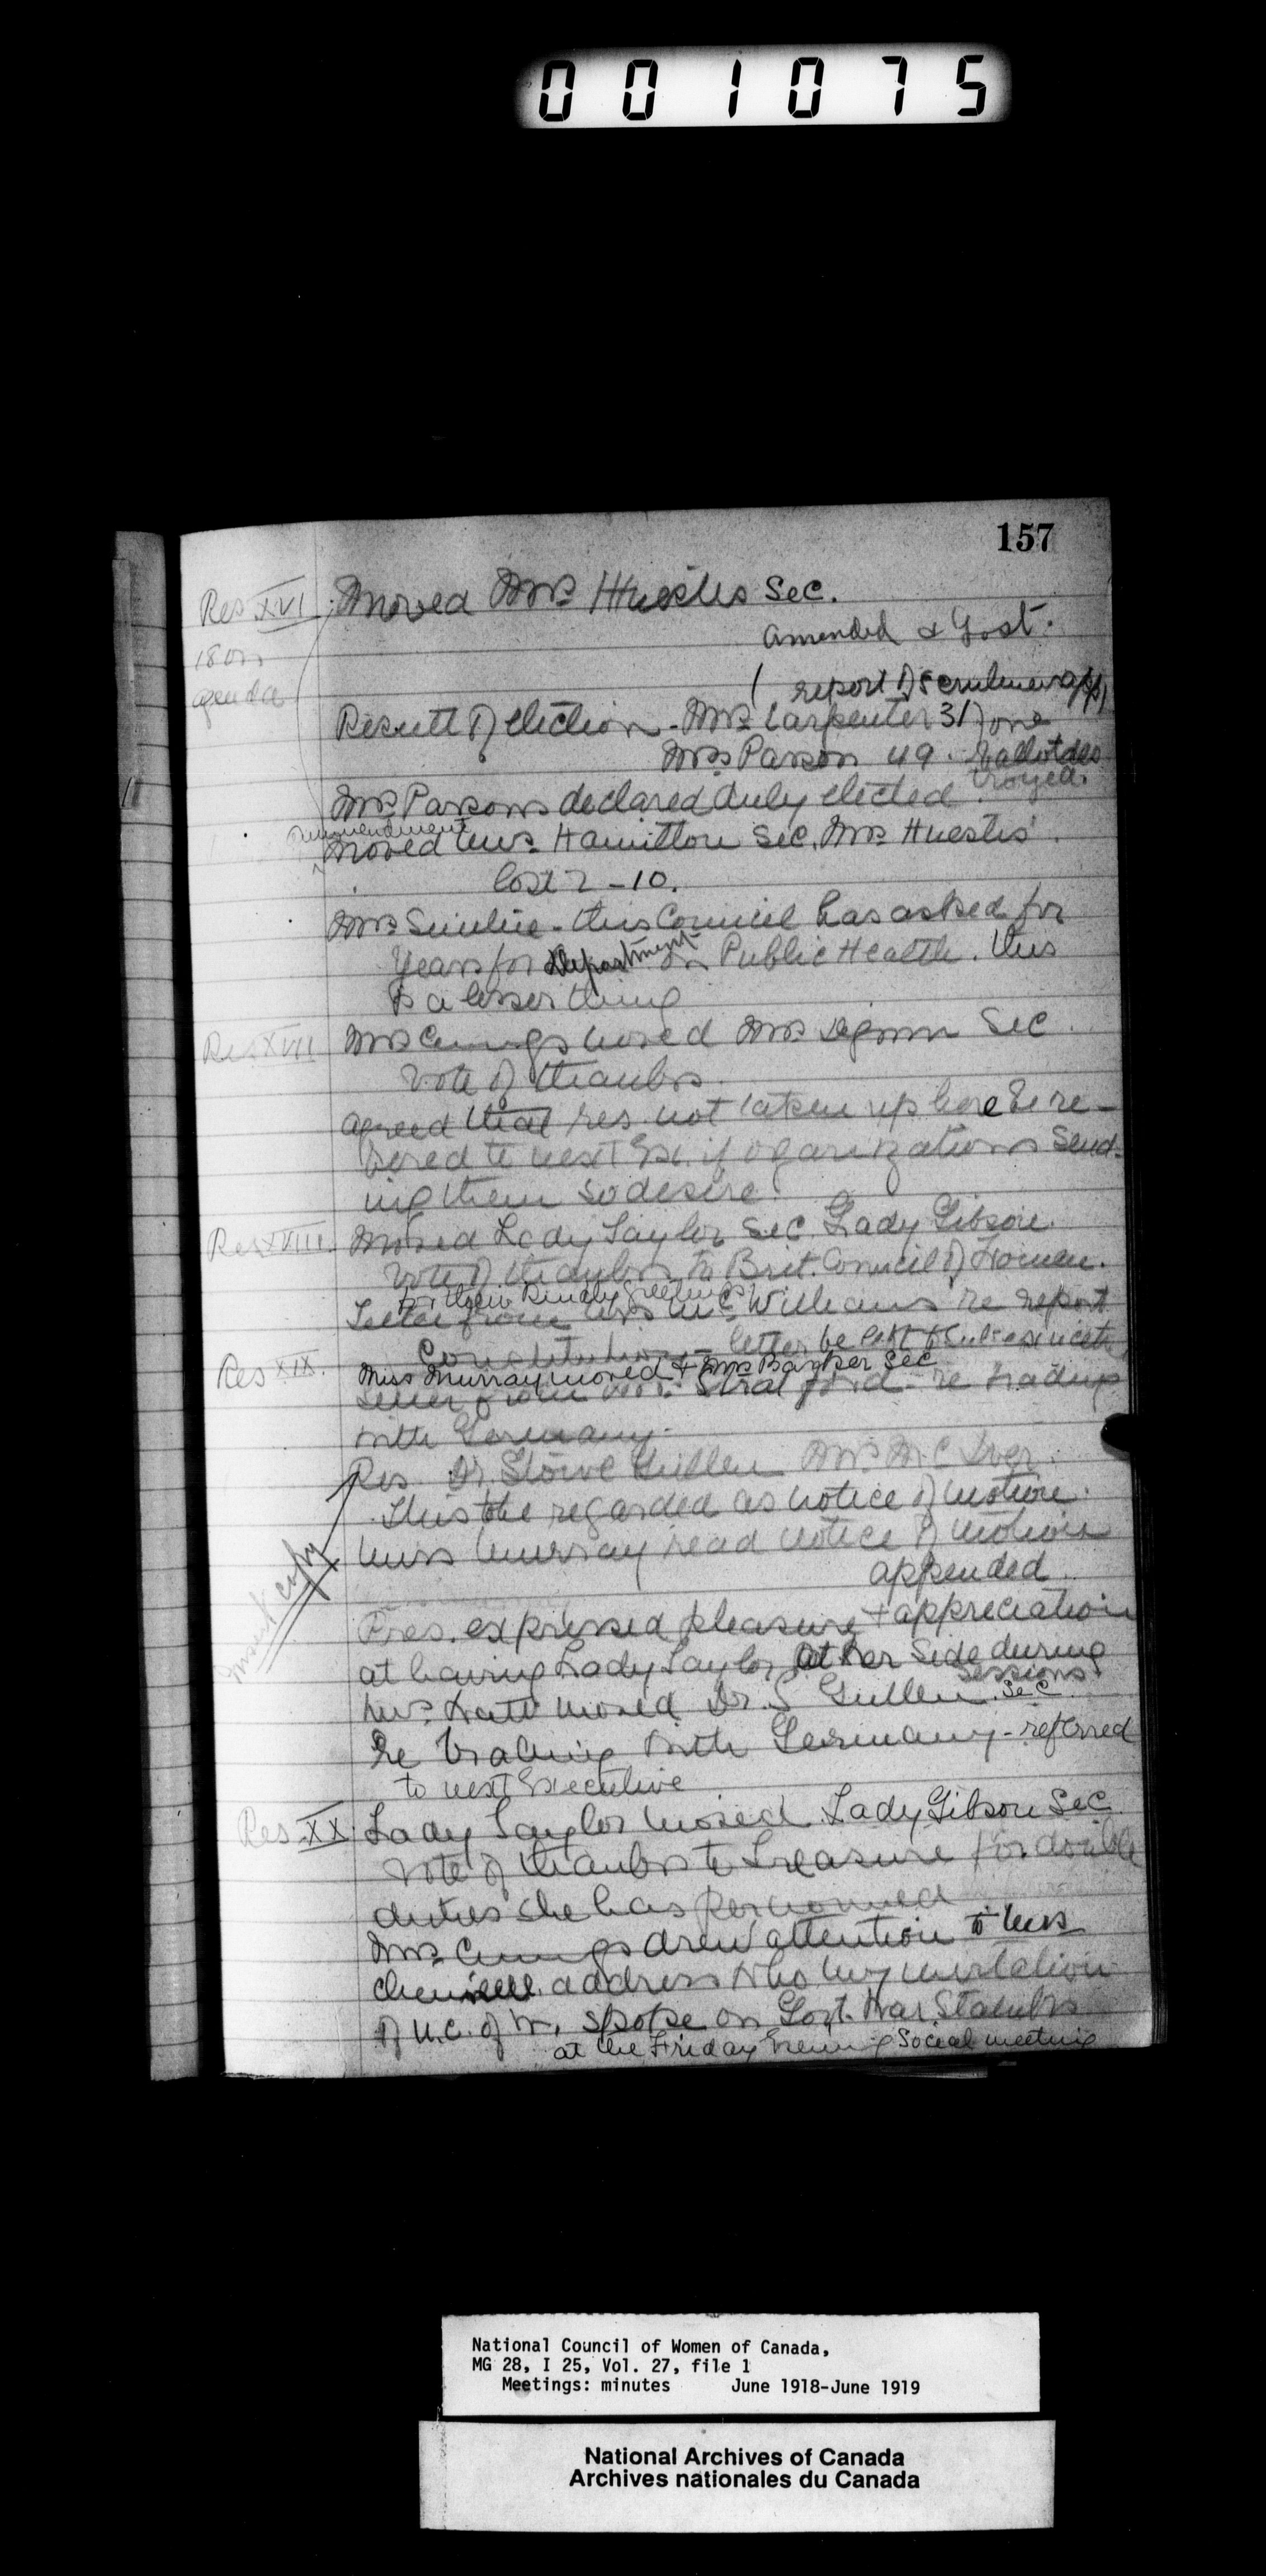 001075
157
Res XVI Moved Mrs Huestis Sec.
18 on
agenda
amended & Lost.
( report of scrutineer app)
Result of election - Mrs Carpenter 31 one
Mrs Parson 49. ballot des
troyed.
Mrs Parsons declared duly elected
ammendment
Moved Mrs. Hamilton Sec. Mrs Huestis
Lost 2-10.
Mrs - this Council has asked for
years for Department on Public Health. This
is a lesser thing
Res XVII Mrs Cumings moved Mrs Sec
Vote of thanks.
agreed that res. not taken up here be re-
to next Ex. if organizations send-
ing them so desire.
Res XVIII Moved Lady Taylor Sec. Lady Gibson.
Vote of thanks to Brit. Council of Women.
for their kindly greetings
Letter from Mrs McWilliams re report
Constitution - letter be left to Sub-executive
Res XIX Miss Murray moved & Mrs Barker Sec
Letter from Stratford - re trading
with Germany.
Res. Dr. Stowe Gullen Mrs McIver.
This to be regarded as notice of motion.
Miss Murray read notice of motion
appended
Insert copy
Pres. expressed pleasure + appreciation
at having Lady Taylor at her side during
sessions
Mrs. moved Dr. S Gullen. Sec
Re trading with Germany - referred
to next Executive
Res. XX Lady Taylor moved Lady Gibson Sec
Vote of thanks to Treasure for double
duties she has performed
Mrs Cumings drew attention to Mrs
address who by invitation
of N.C. of W. spoke on Govt. War Stamps
at the Friday Evening Social meeting
National Council of Women of Canada,
MG 28, I 25, Vol. 27, file 1
Meetings: minutes June 1918-June 1919
National Archives of Canada
Archives nationales du Canada